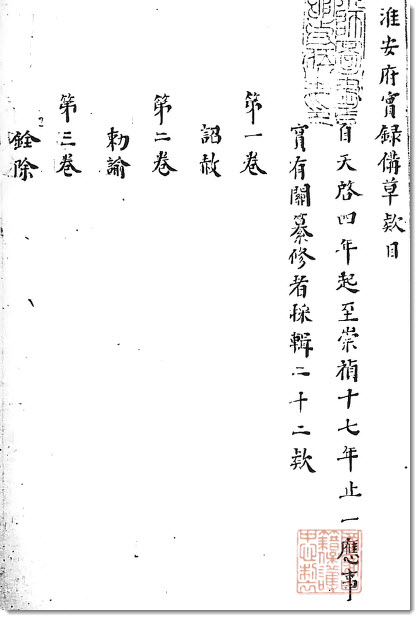 淮安府實録備草款目
自天啓四年起至崇禎十七年止一應事
實有關纂修者採輯二十二款
第一卷
詔赦
第二卷
勅諭
第三卷
銓除